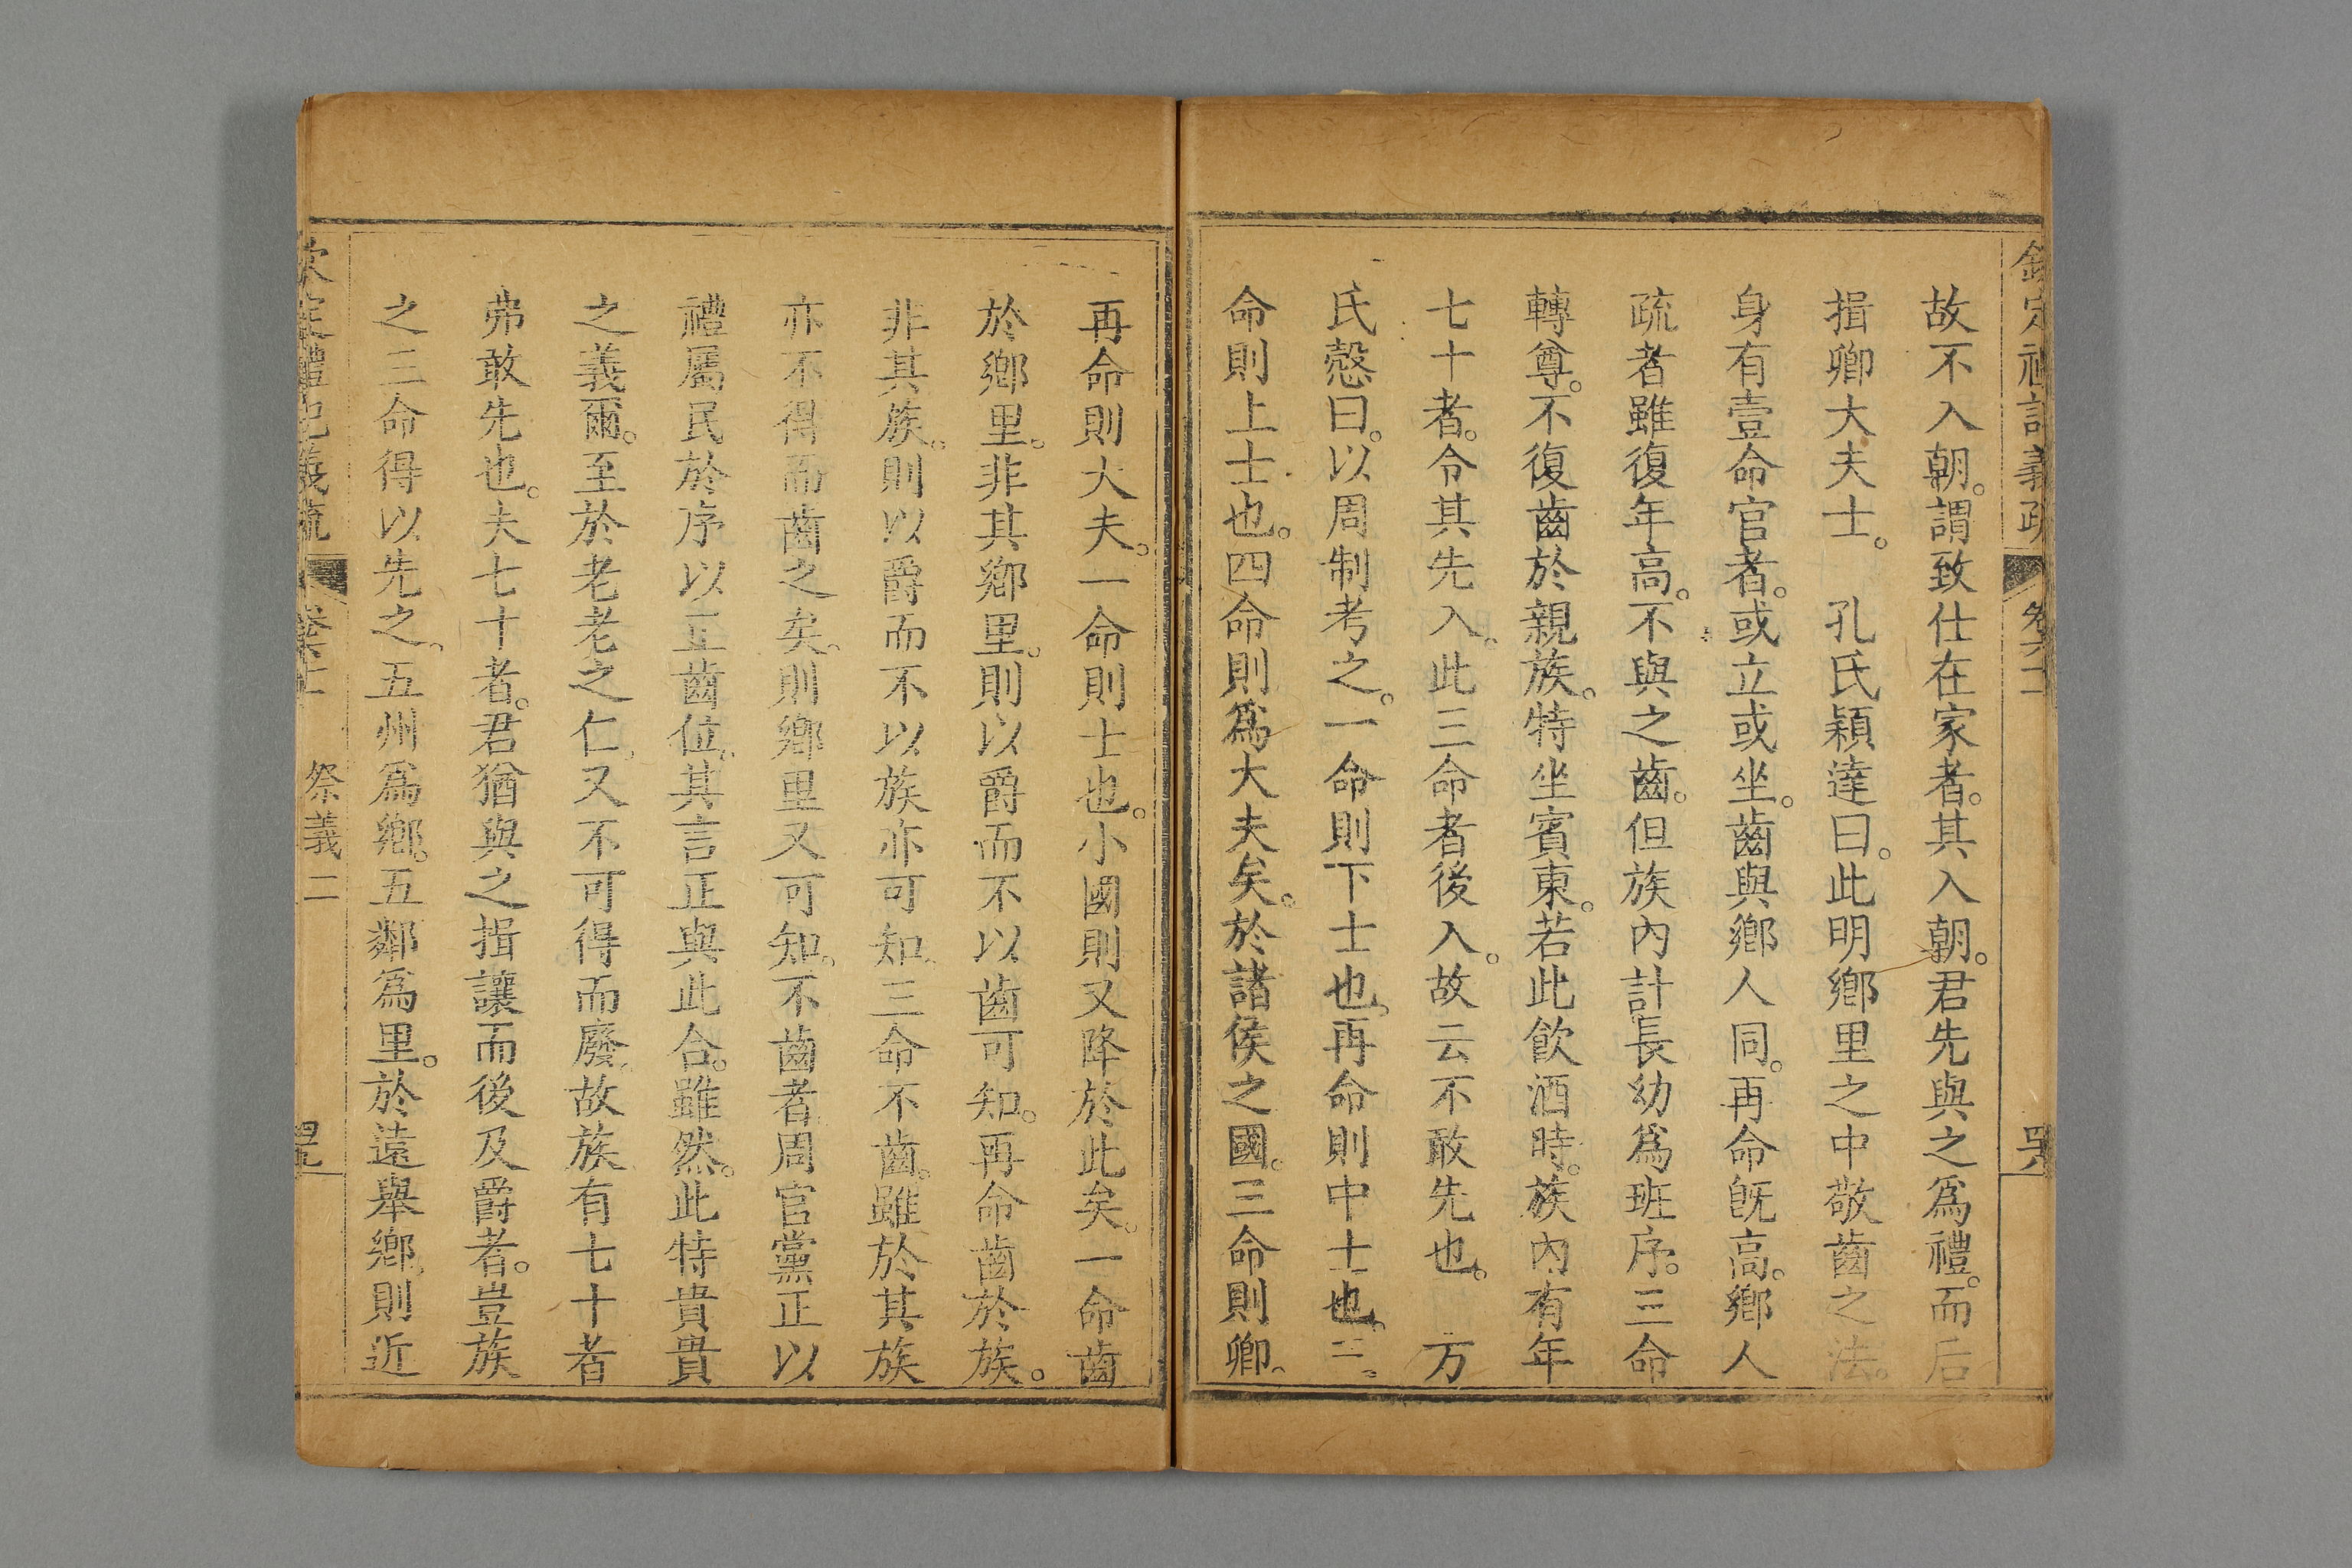 欽定禮記義疏 卷六十二 咒
故不入朝。謂致仕在家者。其入朝。君先與之爲禮。而后
揖卿大夫士。 孔氏穎達曰。此明鄉里之中敬齒之法。
身有壹命官者。或立或坐。齒與鄉人同。再命旣高。鄉人
疏者雖復年高。不與之齒。但族內計長幼爲班序。三命
轉尊。不復齒於親族。特坐賓東。若此飮酒時。族內有年
七十者。令其先入。此三命者後入。故云不敢先也。 方
氏慤曰。以周制考之。一命則下士也。再命則中士也。三。
命則上士也。四命則爲大夫矣。於諸侯之國。三命則卿。
再命則大夫。一命則士也。小國則又降於此矣。一命齒
於鄉里。非其鄉里。則以爵而不以齒可知。再命齒於族。
非其族。則以爵而不以族亦可知。三命不齒。雖於其族
亦不得而齒之矣。則鄉里又可知。不齒者。周官黨正以
禮屬民於序以正齒位。其言正與此合。雖然。此特貴貴
之義爾。至於老老之仁。又不可得而廢。故族有七十者
弗敢先也。夫七十者。君猶與之揖讓而後及爵者。豈族
之三命得以先之。五州爲鄉。五鄰爲里。於遠舉鄉。則近
欽定禮記義疏 祭義二